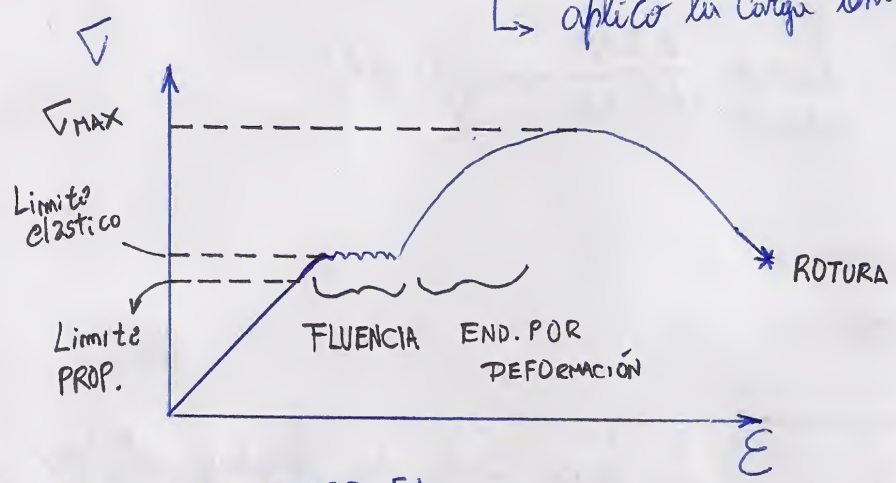 ↳ aplico la carga
σ
σ MAX
Limite
elastico
Limite
PROP.
FLUENCIA END. POR
DEFORMACIÓN
ROTURA
ε